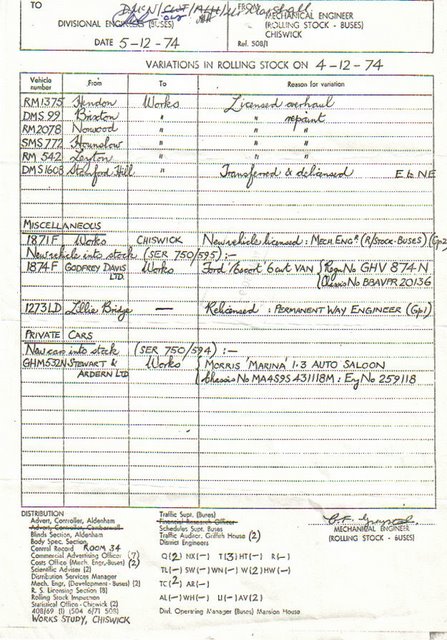 TO
FROM
MECHANICAL ENGINEER
DIVISIONAL ENGINEERS (BUSES)
(ROLLING STOCK - BUSES)
CHISWICK
DATE 5-12-74
Ref. 508/1
VARIATIONS IN ROLLING STOCK ON 4-12-74
Vehicle number From To Reason for variation
RM1375 Hendon Works Licensed overhaul
DMS 99 Brixton " " repaint
RM2078 Norwood " " "
SMS 772 Hounslow " " "
RM 542 Leyton " " "
DMS1608 Stamford Hill Transferred & delicensed E to NE
MISCELLANEOUS
1871F Works CHISWICK New vehicle licensed: MECH ENGR (R/STOCK-BUSES) (Gp2)
New vehicle into stock (SER 750/595) :-
1874F GODFREY DAVIS LTD. Works Ford 'Escort' 6cwt VAN { Regn No GHV 874N
Chassis No BBAVPR 20136
1273LD Lillie Bridge — Relicensed : PERMANENT WAY ENGINEER (Gp1)
PRIVATE CARS
New car into stock (SER 750/594) :-
GHM532N STEWART & ARDERN LTD Works { MORRIS 'MARINA' 1·3 AUTO SALOON
Chassis No MA4S9S 431118M : Eng No 259118
DISTRIBUTION
Advert. Controller, Aldenham
Advert. Controller, Camberwell
Blinds Section, Aldenham
Body Spec. Section
Central Record ROOM 34
Commercial Advertising Officer (7)
Costs Office (Mech. Engr. Buses) (2)
Scientific Adviser (2)
Distribution Services Manager
Mech. Engr. (Development - Buses) (2)
R. S. Licensing Section (8)
Rolling Stock Inspection
Statistical Office - Chiswick (2)
408/69 (1) (504 6/71 508)
WORKS STUDY, CHISWICK
Traffic Supt. (Buses)
Financial Research Officer
Schedules Supt. Buses
Traffic Auditor, Griffith House (2)
District Engineers
Q(2) NX(-) T(3) HT(-) R(-)
TL(-) SW(-) WN(-) W(2) HW(-)
TC(2) AR(-)
AL(-) WH(-) U(-) AV(2)
Divl. Operating Manager (Buses) Mansion House
MECHANICAL ENGINEER
(ROLLING STOCK - BUSES)